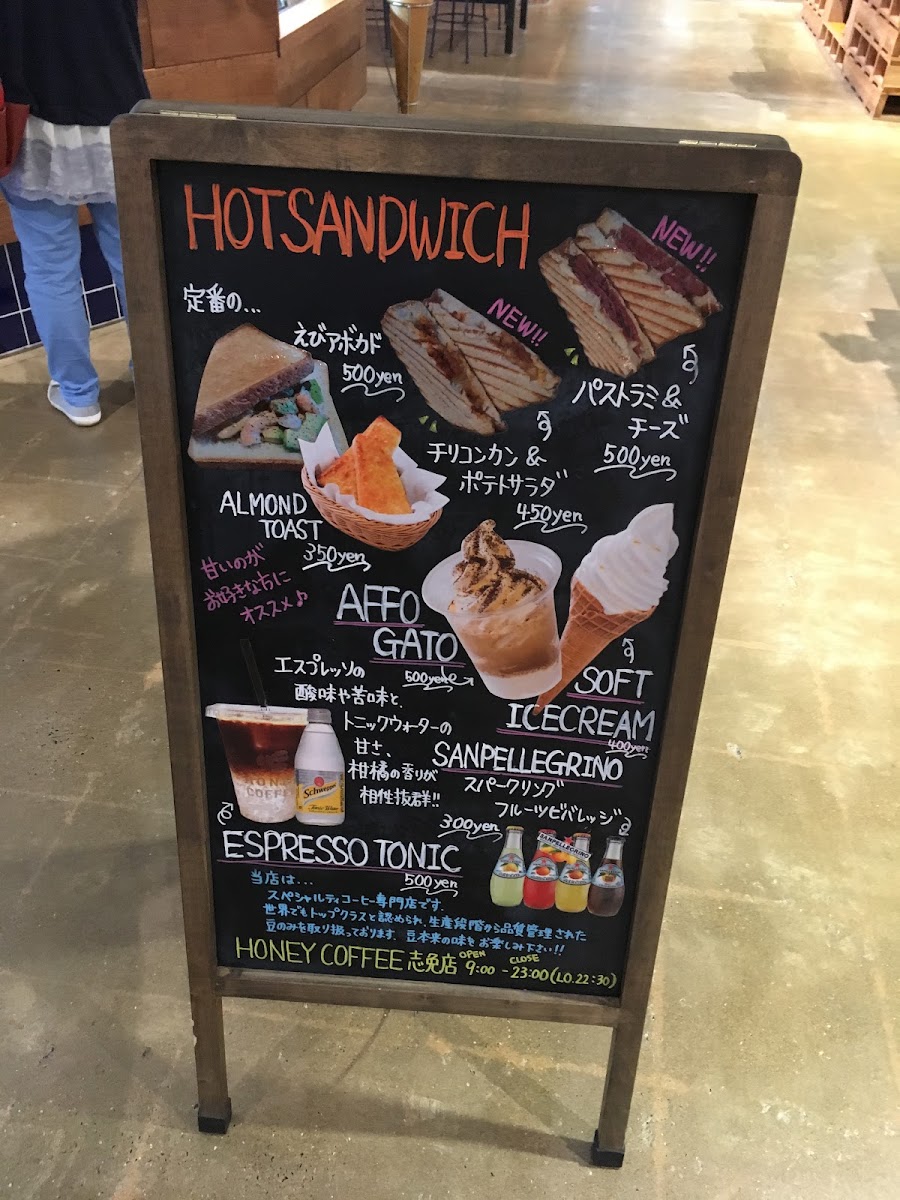 HOTSANDWICH
NEW!!
定番の...
えびアボカド
500yen
NEW!!
パストラミ&
チーズ
500yen
チリコンカン &
ポテトサラダ
450yen
ALMOND
TOAST
350yen
甘いのが
お好きな方に
オススメ♪
AFFO
GATO
500yen
SOFT
ICECREAM
400yen
エスプレッソの
酸味や苦味と、
トニックウォーターの
甘さ、
柑橘の香りが
相性抜群!!
Schweppes
ESPRESSO TONIC
500yen
SANPELLEGRINO
スパークリング
フルーツビバレッジ
300yen
SANPELLEGRINO
当店は...
スペシャルティコーヒー専門店です。
世界でもトップクラスと認められ、生産段階から品質管理された
豆のみを取り扱っております。豆本来の味をお楽しみ下さい!!
HONEY COFFEE 志免店 OPEN 9:00 - CLOSE 23:00 (L.O.22:30)